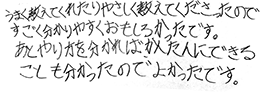 うまく教えてくれたりやさしく教えてくださったので
すごく分かりやすくおもしろかったです。
あとやりかたを分かればかんたんにできる
ことも分かったのでよかったです。